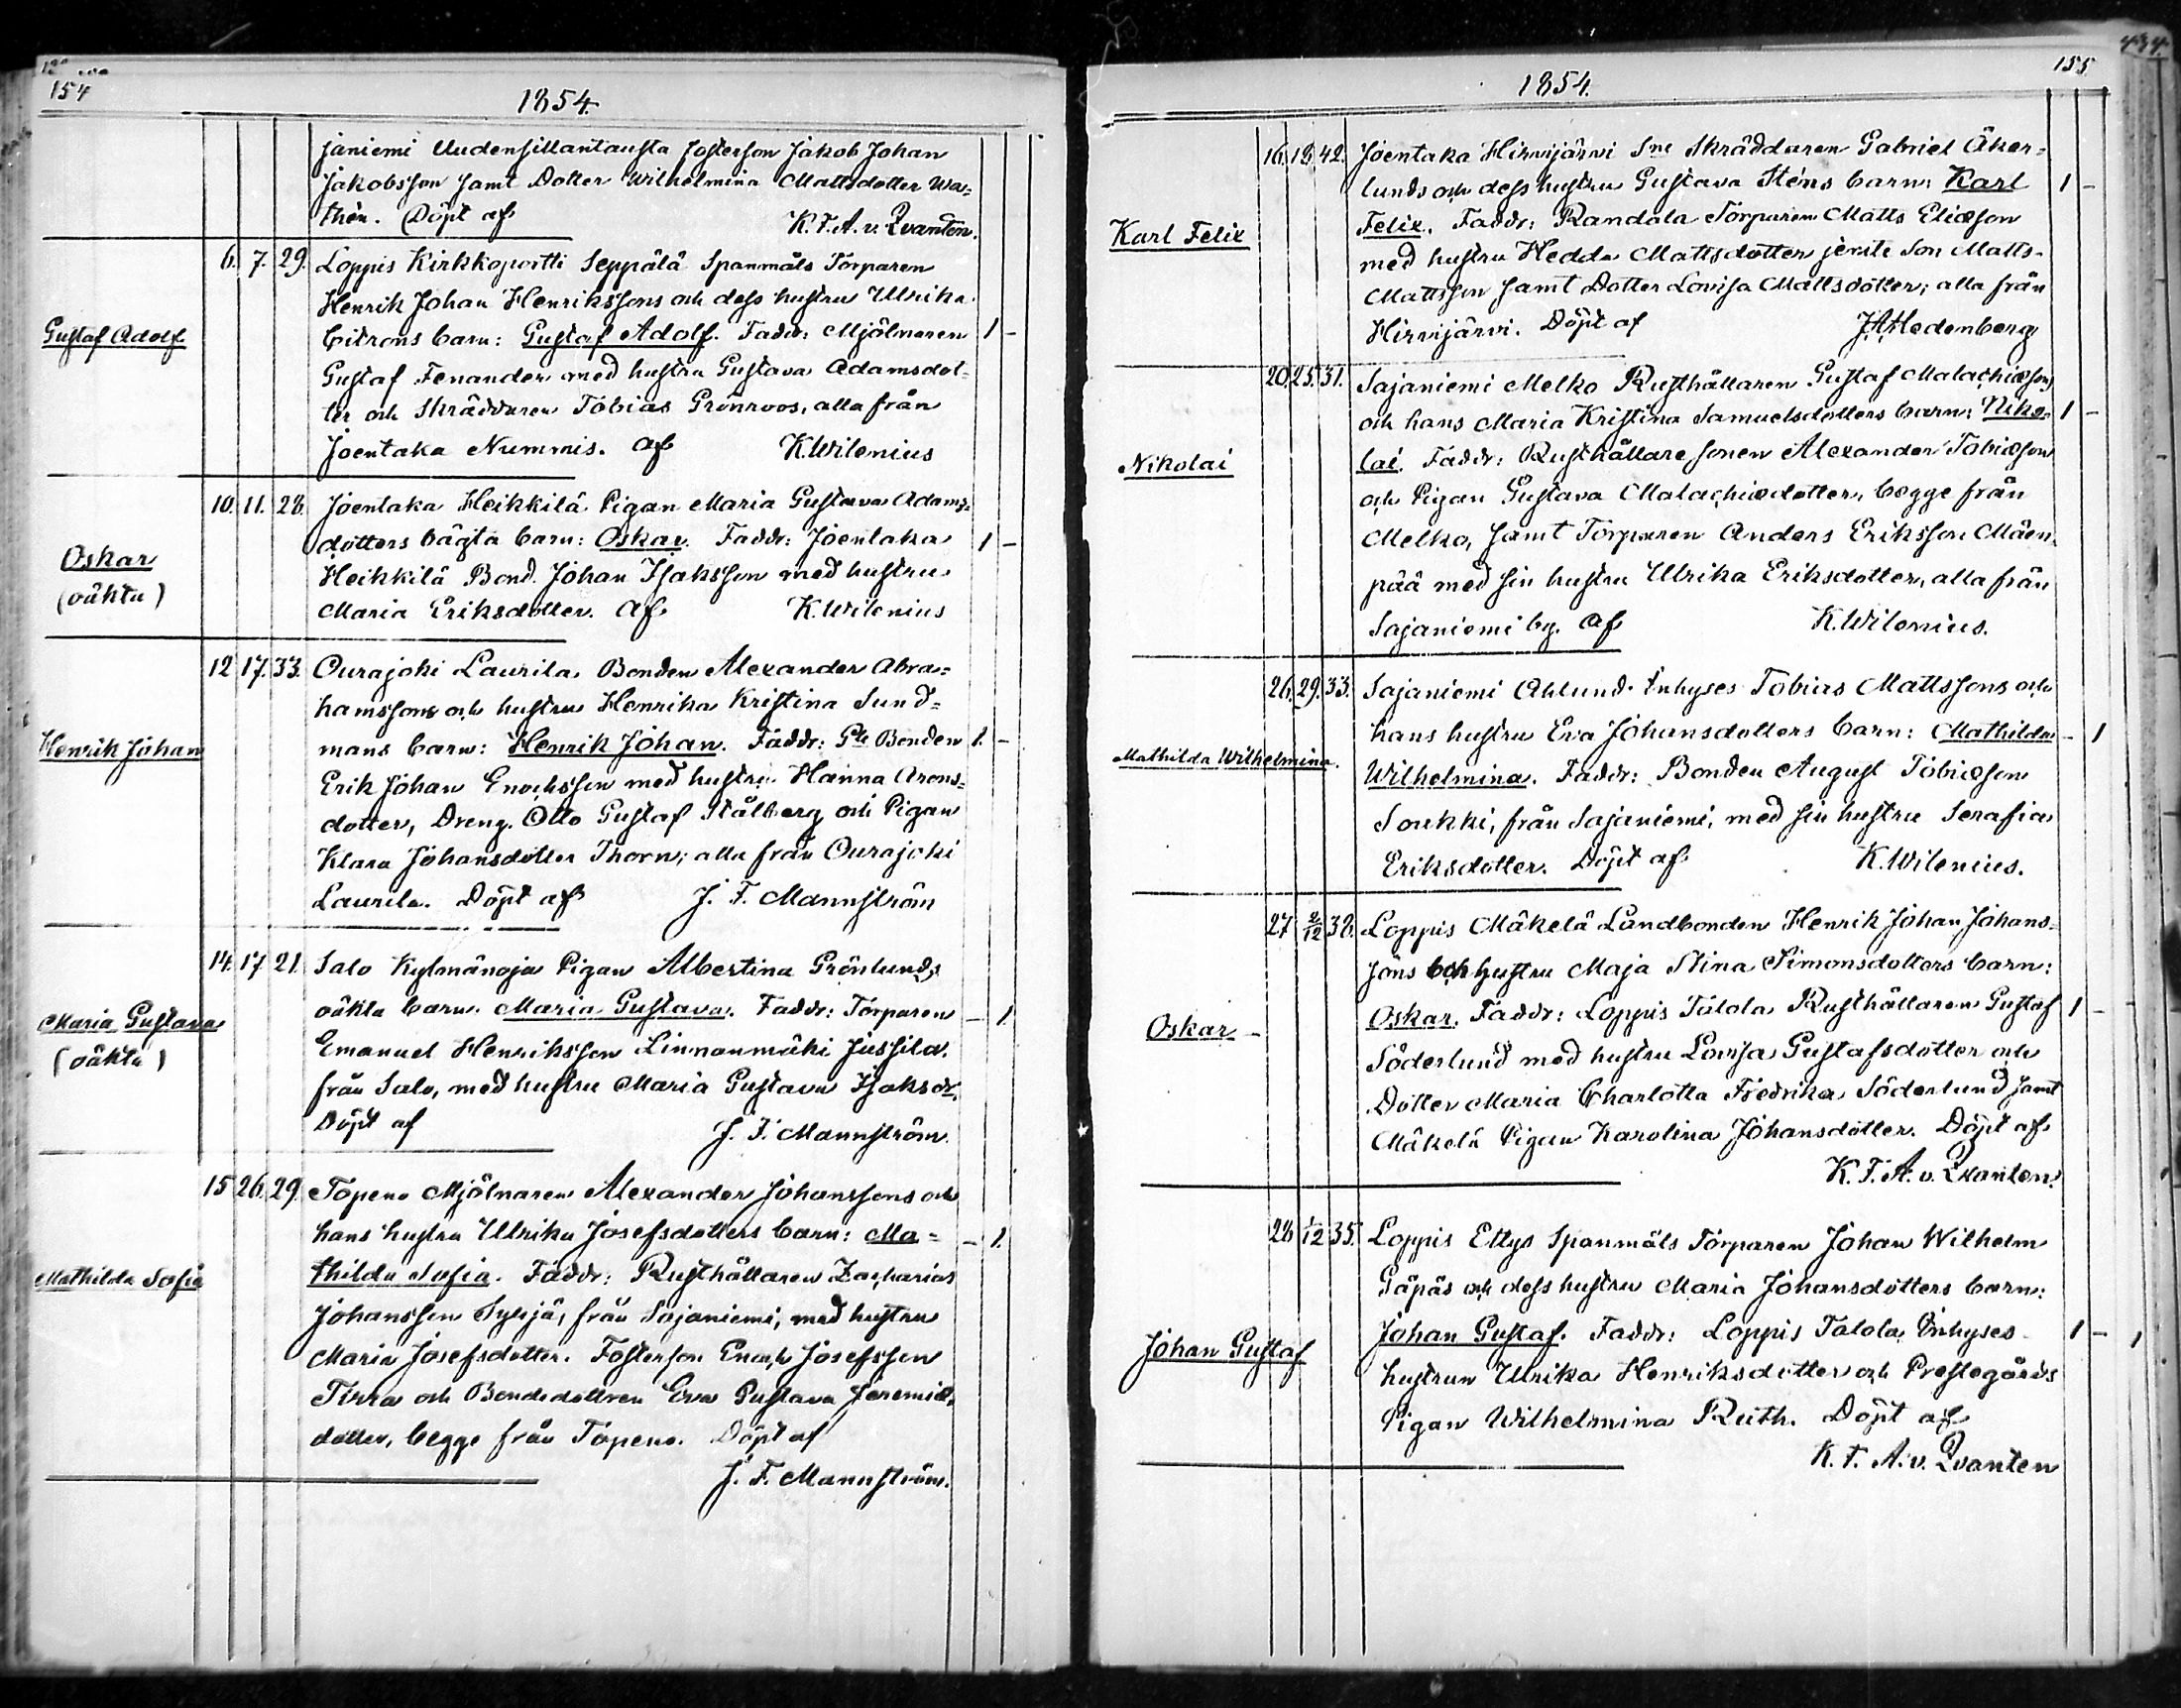 154
1854.
janiemi Uudensillantausta fosterson Jakob Johan
Jakobsson samt Dotter Wilhelmina Mattsdotter Wa=
thén. Döpt af K. F. A. v. Qvanten.
6. 7. 29. Loppis Kirkkoportti Seppälä Spanmåls Torparen
Henrik Johan Henrikssons och dess hustru Ulrika
Gustaf Adolf. Citrons barn: Gustaf Adolf. Faddr: Mjölnaren 1 –
Gustaf Fenander med hustru Gustava Adamsdot=
ter och Skräddaren Tobias Grönroos, alla från
Joentaka Nummis. af K. Wilenius
10. 11. 28. Joentaka Heikkilä Pigan Maria Gustava Adams=
Oskar dotters oägta barn: Oskar. Faddr: Joentaka 1 –
(oäkta) Heikkilä Bond. Johan Isaksson med hustru
Maria Eriksdotter. af K. Wilenius
12 17. 33. Ourajoki Laurila Bonden Alexander Abra=
hamssons och hustru Henrika Kristina Sund=
Henrik Johan mans barn: Henrik Johan. Faddr: Bonden 1. –
Erik Johan Enochsson med hustru Hanna Arons=
dotter, Dreng. Otto Gustaf Stålberg och Pigan
Klara Johansdotter Thorn; alla från Ourajoki
Laurila. Döpt af J. F. Mannström
14. 17 21. Salo Kylmänoja Pigan Albertina Grönlunds
Maria Gustava oäkta barn. Maria Gustava. Faddr: Torparen – 1.
(oäkta) Emanuel Henriksson Linnanmäki Jussila.
från Salo, med hustru Maria Gustava Isaksdr.
Döpt af J. F. Mannström.
15 26. 29. Topeno Mjölnaren Alexander Johanssons och
hans hustru Ulrika Josefsdotters barn: Ma= – 1.
Mathilda Sofia thilda Sofia. Faddr: Rusthållaren Zacharias
Johansson Syrjä, från Sajaniemi, med hustru
Maria Josefsdotter. Fosterson Enoch Josefsson
Tirra och Bondedottren Eva Gustava Jeremiæ
dotter, begge från Topeno. Döpt af
J. F. Mannström.
434.
155.
1854.
16. 18. 42. Joentaka Hirvijärvi Sne Skräddaren Gabriel Åker=
lunds och dess hustru Gustava Sténs barn: Karl 1 –
Karl Felix Felix. Faddr: Randala Torparen Matts Eliæson
med hustru Hedda Mattsdotter jemte Son Matts
Mattsson samt Dotter Lovisa Mattsdotter; alla från
Hirvijärvi. Döpt af J. A. Hedenberg
20. 25. 31. Sajaniemi Melko Rusthållaren Gustaf Malachiæson
och hans Maria Kristina Samuelsdotters barn: Niko= 1 –
Nikolai lai. Faddr: Rusthållare sonen Alexander Tobiæson
och Pigan Gustava Malachiædotter, begge från
Melko, samt Torparen Anders Eriksson Mäen=
pää med sin hustru Ulrika Eriksdotter, alla från
Sajaniemi by. af K. Wilenius.
26. 29. 33. Sajaniemi Ahlund Inhyses Tobias Mattssons och
hans hustru Eva Johansdotters barn: Mathilda – 1
Mathilda Wilhelmina. Wilhelmina. Faddr: Bonden August Tobiæson
Soukki, från Sajaniemi, med sin hustru Serafia
Eriksdotter. Döpt af K. Wilenius.
27 2/12 38. Loppis Mäkelä Landbonden Henrik Johan Johans=
sons och hustru Maja Stina Simonsdotters barn:
Oskar – Oskar. Faddr: Loppis Talola Rusthållaren Gustaf 1 –
Söderlund med hustru Lovisa Gustafsdotter och
Dotter Maria Charlotta Fredrika Söderlund samt
Mäkelä Pigan Karolina Johansdotter. Döpt af
K. F. A. v. Qvanten.
28 1/12 35. Loppis Ettys Spanmåls Torparen Johan Wilhelm
Gåpås och dess hustru Maria Johansdotters barn:
Johan Gustaf Johan Gustaf. Faddr: Loppis Talola Inhyses 1 –
hustrun Ulrika Henriksdotter och Prestegårds
Pigan Wilhelmina Ruth. Döpt af
K. F. A. v. Qvanten